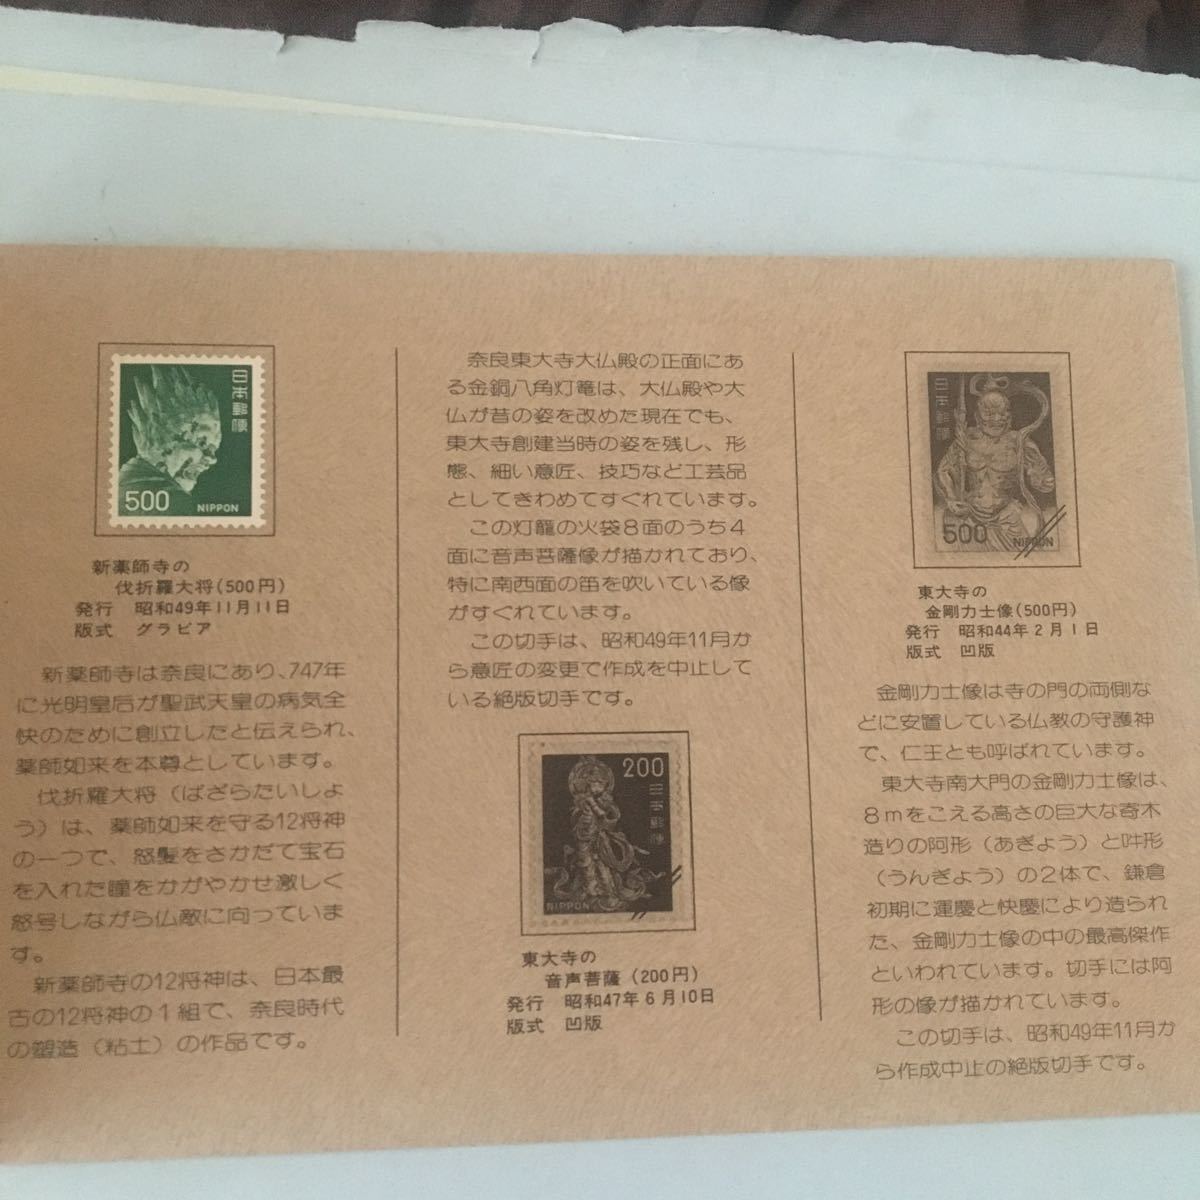 日本郵便
500
NIPPON
新薬師寺の
伐折羅大将(500円)
発行 昭和49年11月11日
版式 グラビア
新薬師寺は奈良にあり、747年
に光明皇后が聖武天皇の病気全
快のために創立したと伝えられ、
薬師如来を本尊としています。
伐折羅大将(ばざらたいしょ
う)は、薬師如来を守る12将神
の一つで、怒髪をさかだて宝石
を入れた瞳をかがやかせ激しく
怒号しながら仏敵に向っていま
す。
新薬師寺の12将神は、日本最
古の12将神の1組で、奈良時代
の塑造(粘土)の作品です。
奈良東大寺大仏殿の正面にあ
る金銅八角灯篭は、大仏殿や大
仏が昔の姿を改めた現在でも、
東大寺創建当時の姿を残し、形
態、細い意匠、技巧など工芸品
としてきわめてすぐれています。
この灯籠の火袋8面のうち4
面に音声菩薩像が描かれており、
特に南西面の笛を吹いている像
がすぐれています。
この切手は、昭和49年11月か
ら意匠の変更で作成を中止して
いる絶版切手です。
200
日本郵便
NIPPON
東大寺の
音声菩薩(200円)
発行 昭和47年6月10日
版式 凹版
日本郵便
500
NIPPON
東大寺の
金剛力士像(500円)
発行 昭和44年2月1日
版式 凹版
金剛力士像は寺の門の両側な
どに安置している仏教の守護神
で、仁王とも呼ばれています。
東大寺南大門の金剛力士像は、
8mをこえる高さの巨大な寄木
造りの阿形(あぎょう)と吽形
(うんぎょう)の2体で、鎌倉
初期に運慶と快慶により造られ
た、金剛力士像の中の最高傑作
といわれています。切手には阿
形の像が描かれています。
この切手は、昭和49年11月か
ら作成中止の絶版切手です。